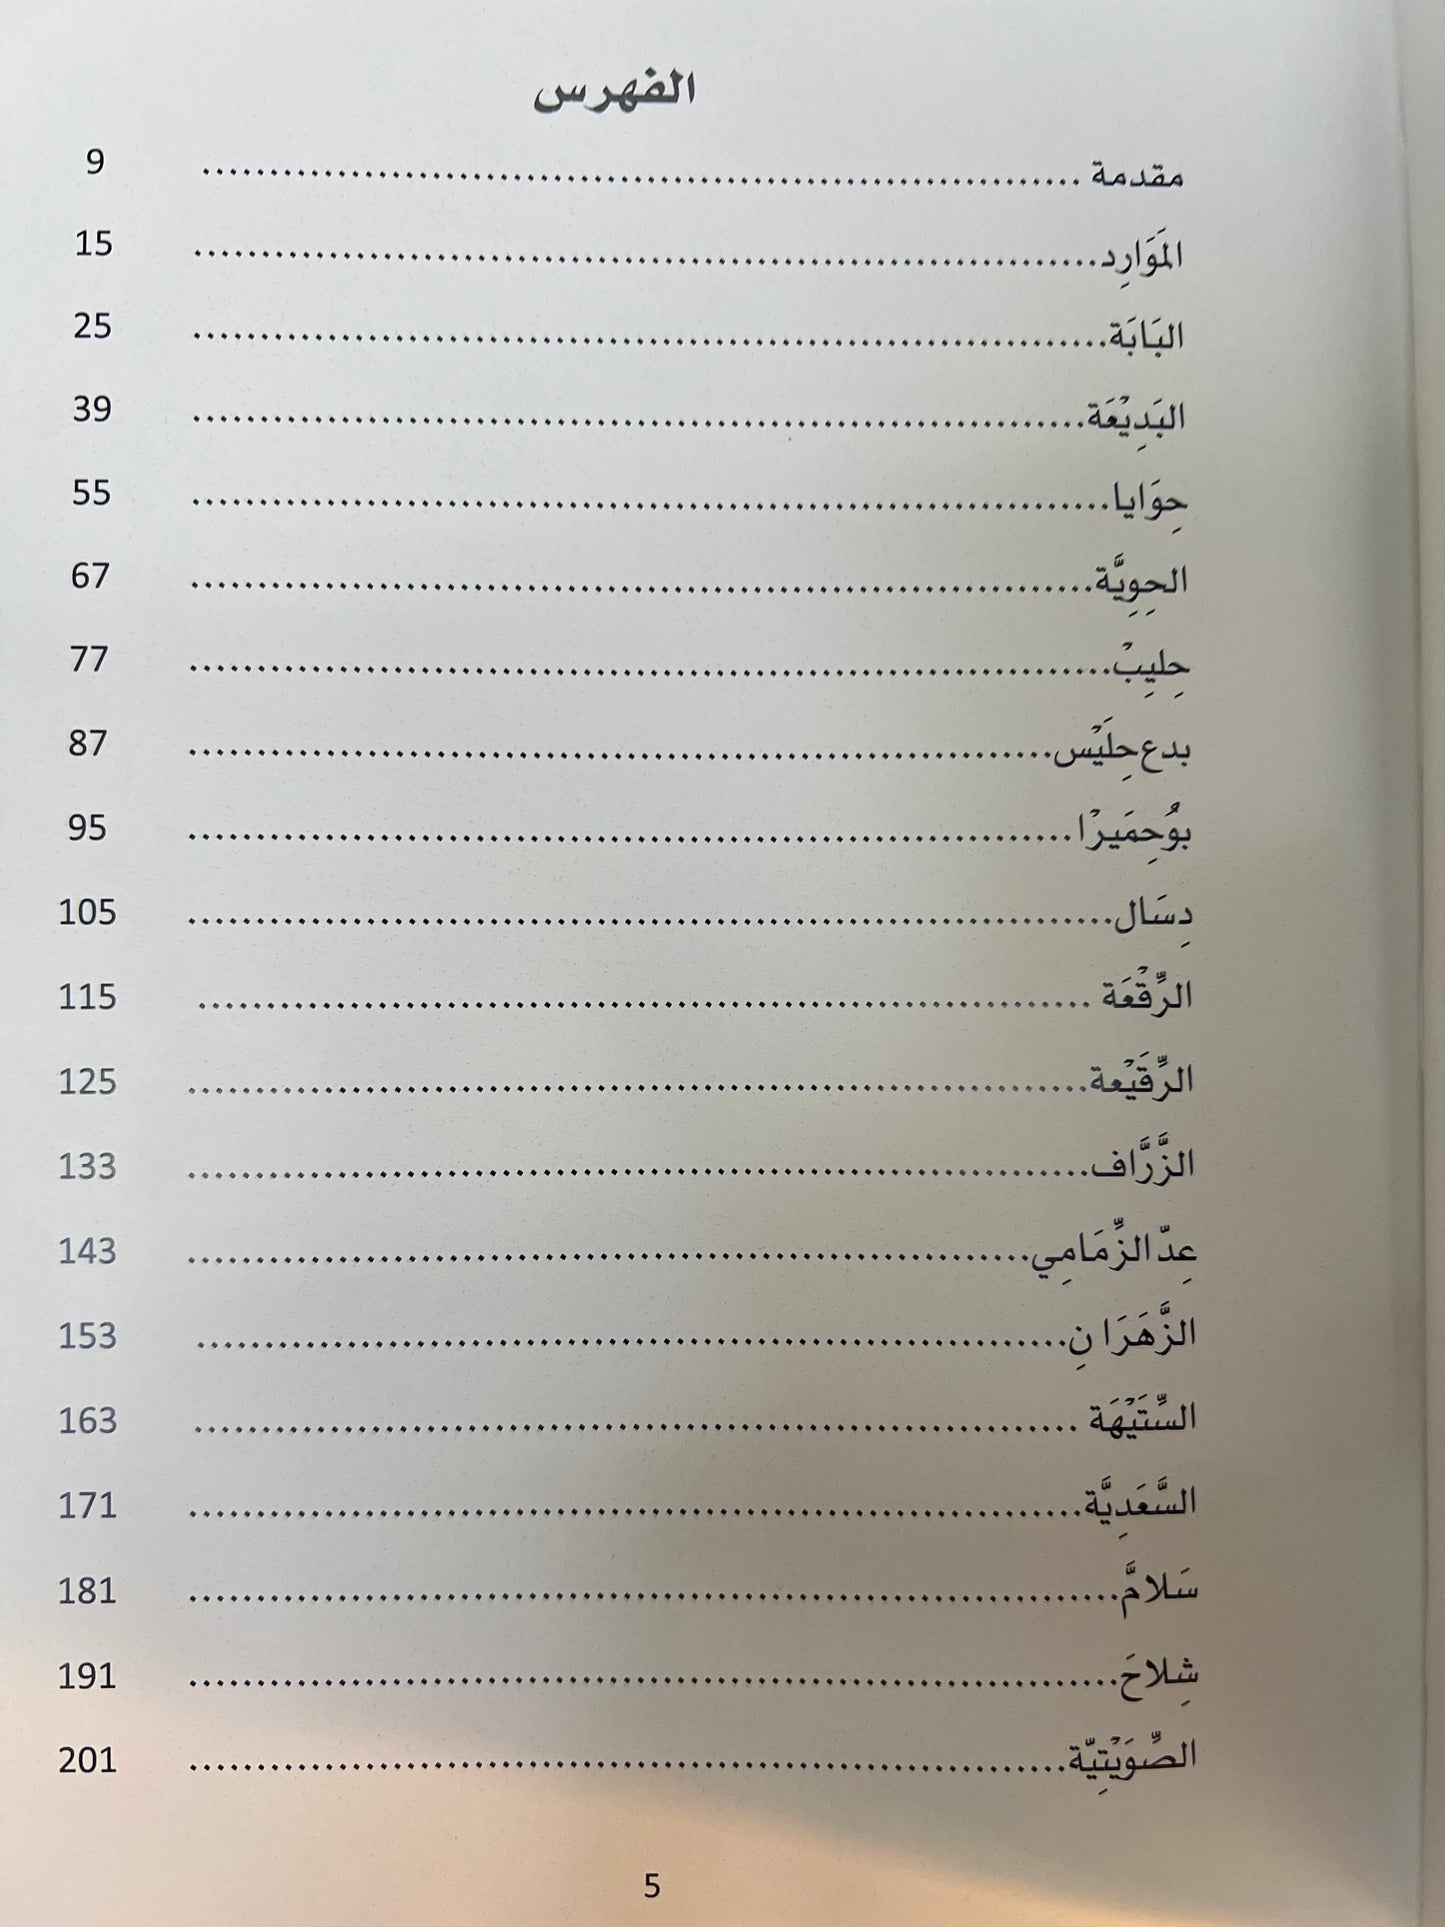 الفهرس
مقدمة ........................................................ 9
المَوَارِد........................................................ 15
البَابَة........................................................ 25
البَدِيْعَة........................................................ 39
حِوَايا........................................................ 55
الحِوِيَّة........................................................ 67
حِليِبْ........................................................ 77
بدع حِلَيْس........................................................ 87
بوُحِمَيرْا........................................................ 95
دِسَال........................................................ 105
الرِّقْعَة ........................................................ 115
الرِّقَيْعة........................................................ 125
الزَّرَّاف........................................................ 133
عِدّ الزِّمَامِي........................................................ 143
الزَّهَرَانِ........................................................ 153
السِّتَيْهَة ........................................................ 163
السَّعَدِيَّة........................................................ 171
سَلامَّ........................................................ 181
شِلاحَ........................................................ 191
الصِّوَيْتِيّة........................................................ 201
5